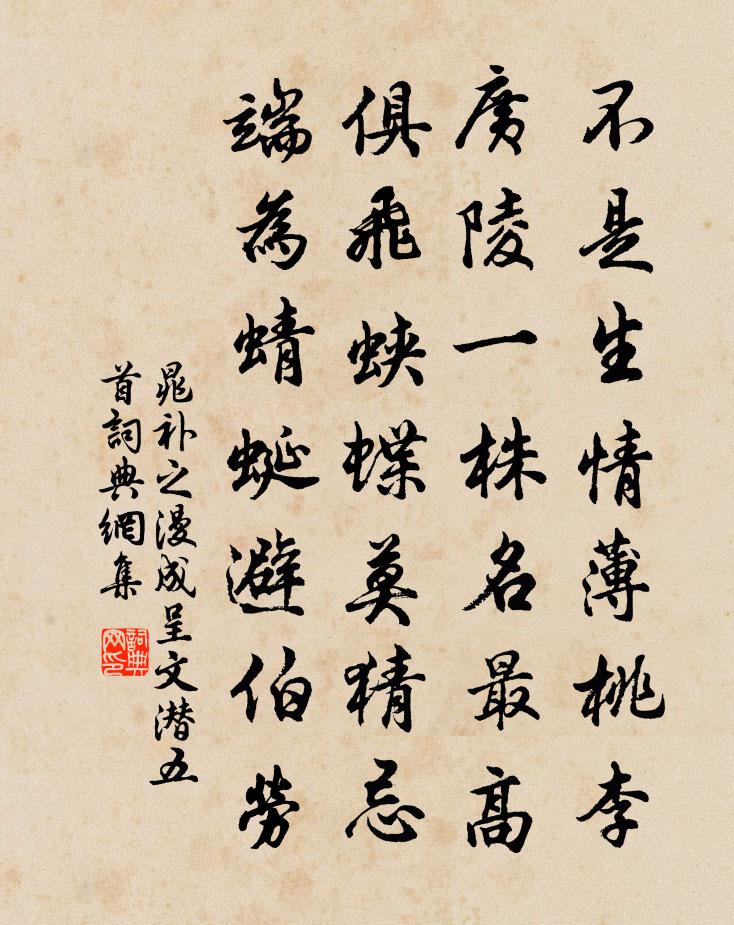 不是生情薄桃李
廣陵一株名最高
俱飛蛺蝶莫猜忌
端為蜻蜓避伯勞
晁补之漫成呈文潜五
首詞典網集
詞典
网印